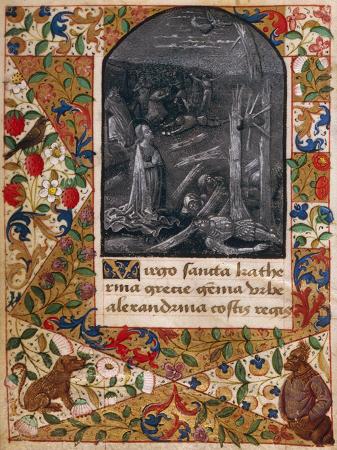 Virgo sancta kathe
rina grecie gema vrbe
alexandrina costis regis